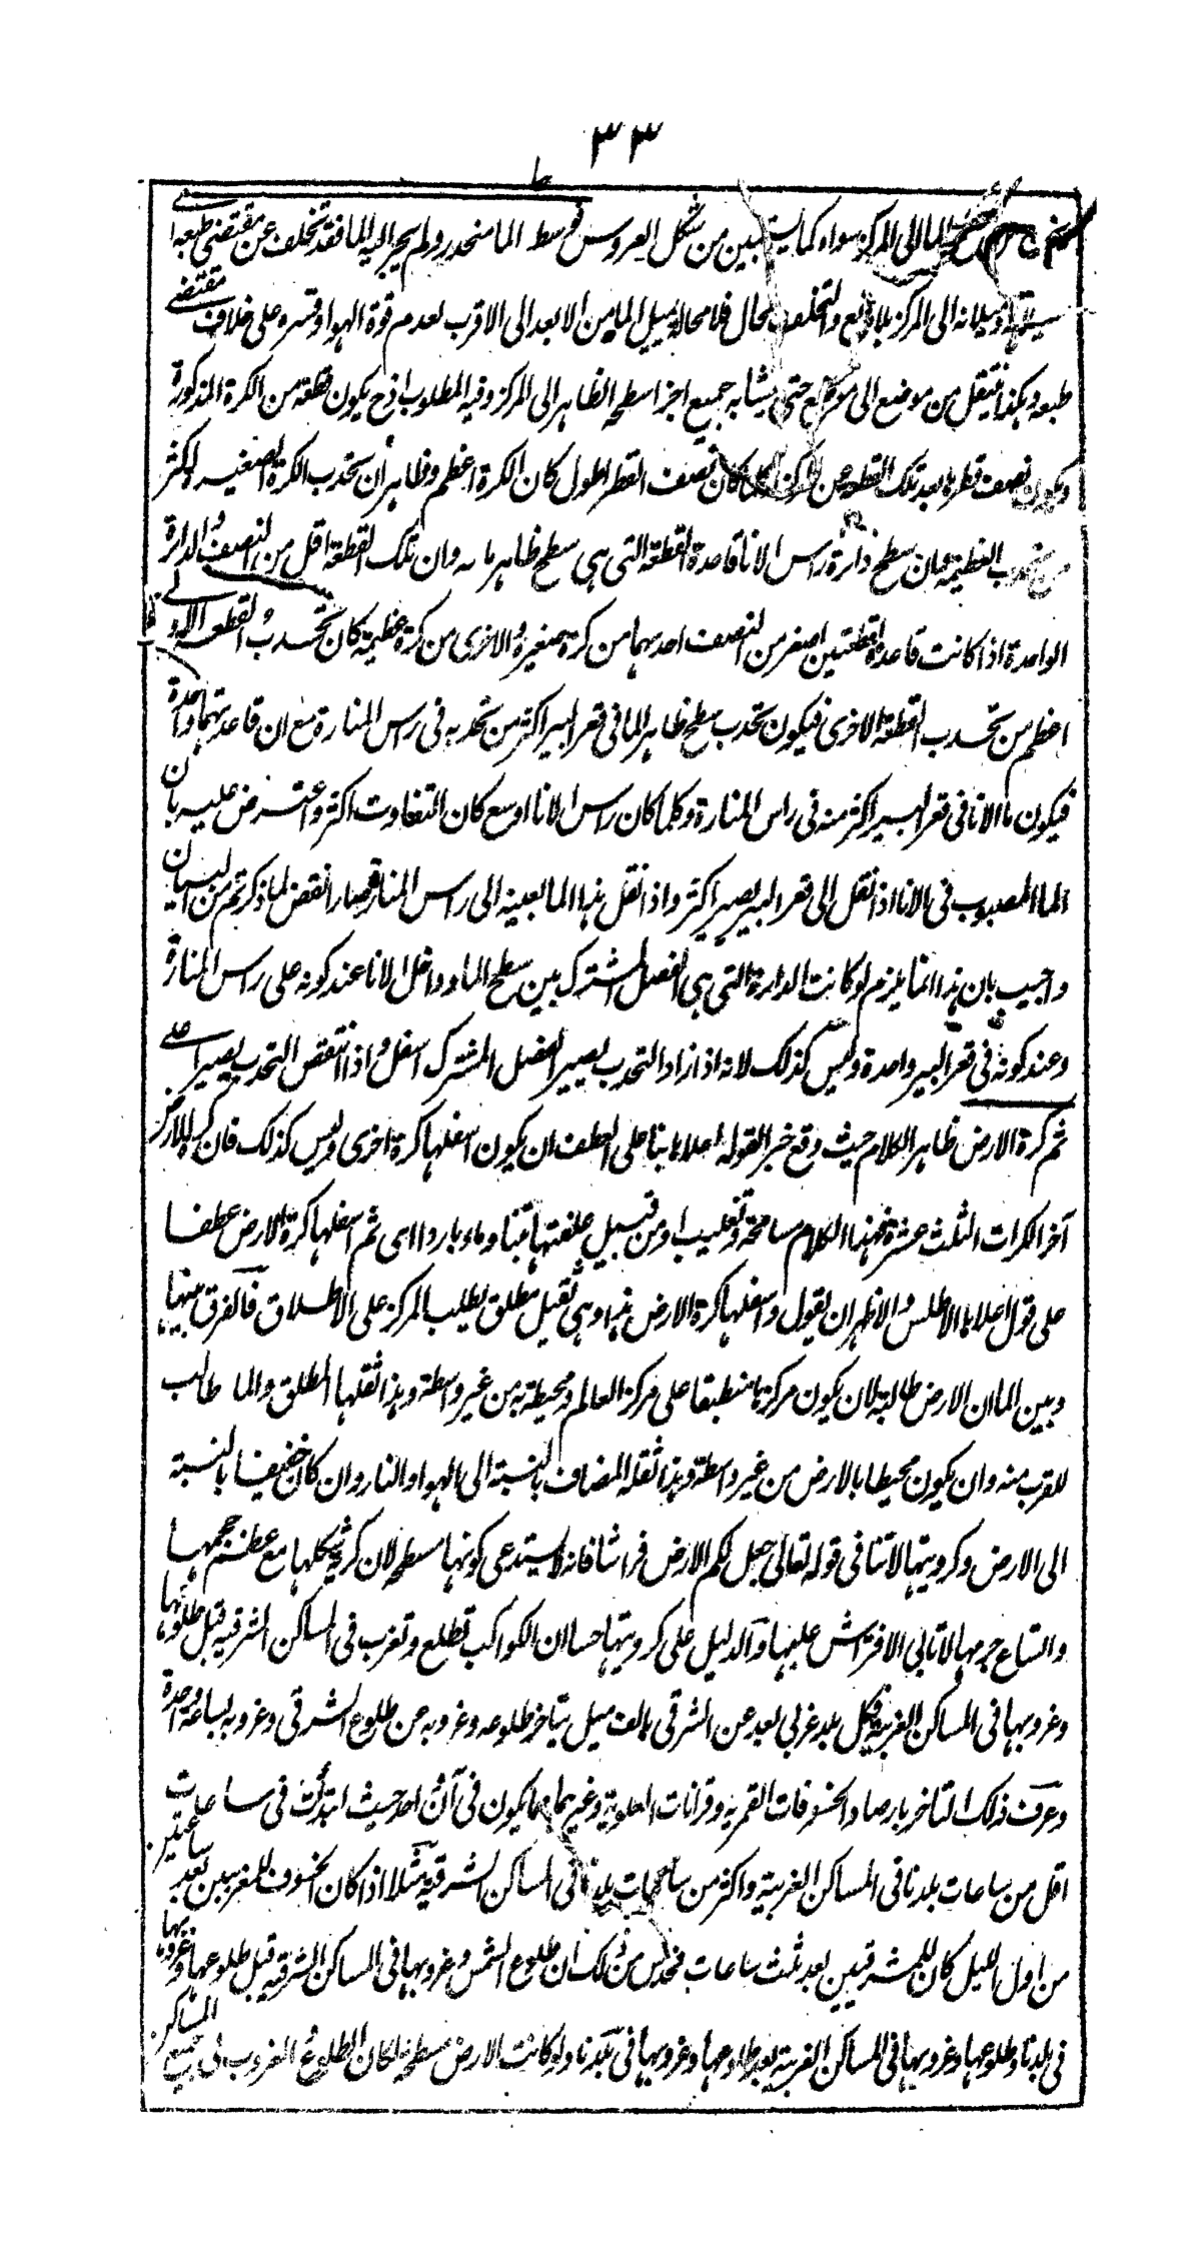 ٣٣
الماء الى المركز سواء كما يستبين من شكل العروس فوسط الماء منحدر ولم يجر اليه الماء فقد تخلف عن مقتضى طبعه اى
سيلانه وميلانه الى المركز بلا مانع والتخلف محال فلا محالة يميل الماء من الابعد الى الاقرب لعدم قوة الهواء وقسره على خلاف مقتضى
طبعه وهكذا ينتقل من موضع الى موضع حتى يشابه جميع اجزاء سطحه الظاهر الى المركز وفيه المطلوب اذ ح يكون قطعة من الكرة المذكورة
ويكون نصف قطرها بعد تلك القطعة عن المركز كلما كان نصف القطر اطول كان الكرة اعظم وظاهر ان تحدب الكرة الصغيرة اكثر
من تحدب العظيمة وان سطح دائرة راس الاناء قاعدة القطعة التى هى سطح ظاهر مائه وان تلك القطعة اقل من النصف والدائرة
الواحدة اذا كانت قاعدة لقطعتين اصغر من النصف احدهما من كرة صغيرة والاخرى من كرة عظيمة كان تحدب القطعة الاولى
اعظم من تحدب القطعة الاخرى فيكون تحدب سطح ظاهر الماء فى قعر البير اكثر من تحدبه فى راس المنارة مع ان قاعدتهما واحدة
فيكون ماء الاناء فى قعر البير اكثر منه فى راس المنارة وكلما كان راس الاناء اوسع كان التفاوت اكثر واعترض عليه بان
الماء المصبوب فى الاناء اذا نقل الى قعر البير يصير اكثر واذا نقل هذا الماء بعينه الى راس المنارة صار انقص لما ذكرتم من البيان
واجيب بان هذا انما يلزم لو كانت الدائرة التى هى الفصل المشترك بين سطح الماء وداخل الاناء عند كونه على راس المنارة
وعند كونه فى قعر البير واحدة وليس كذلك لانه اذا زاد التحدب يصير الفصل المشترك اسفل واذا انتقص التحدب يصير اعلى
ثم كرة الارض ظاهر الكلام حيث وقع خبر القوله اعلاها بناء على العطف ان يكون اسفلها كرة اخرى وليس كذلك فان كرة الارض
آخر الكرات الثلث عشرة فهذا الكلام مسامحة وتغليب او من قبيل علفتها تبنا وماء باردا اى ثم اسفلها كرة الارض عطفا
على قوله اعلاها الاطلس والاظهر ان يقول واسفلها كرة الارض هذا وهى ثقيل مطلق يطلب المركز على الاطلاق فالفرق بينها
وبين الماء ان الارض طالبة لان يكون مركزها منطبقا على مركز العالم ومحيطة به من غير واسطة وهذا ثقلها المطلق والماء طالب
للقرب منه وان يكون محيطا بالارض من غير واسطة وهذا ثقله المضاف بالنسبة الى الهواء والنار وان كان خفيفا بالنسبة
الى الارض وكرويتها لا تنافى قوله تعالى جعل لكم الارض فراشا فانه لا يستدعى كونها مسطحة لان كرية شكلها مع عظم حجمها
واتساع جرمها لا تابى الافتراش عليها والدليل على كرويتها حسا ان الكواكب تطلع وتغرب فى المساكن الشرقية قبل طلوعها
وغروبها فى المساكن الغربية فكل بلد غربى بعد عن الشرقى بالف ميل يتاخر طلوعه وغروبه عن طلوع الشرقى وغروبه بساعة واحدة
وعرف ذلك التاخر بارصاد الخسوفات القمرية وقرانات العلوية وغيرهما مما يكون فى آن واحد حيث ابتدئت فى ساعات
اقل من ساعات بلدنا فى المساكن الغربية واكثر من ساعات بلدنا فى المساكن الشرقية مثلا اذا كان الخسوف للمغربيين بعد ساعتين
من اول الليل كان للمشرقيين بعد ثلث ساعات فحدس من ذلك ان طلوع الشمس وغروبها فى المساكن الشرقية قبل طلوعها وغروبها
فى بلدنا وطلوعها وغروبها فى المساكن الغربية بعد طلوعها وغروبها فى بلدنا ولو كانت الارض مسطحة لكان الطلوع والغروب فى جميع المساكن